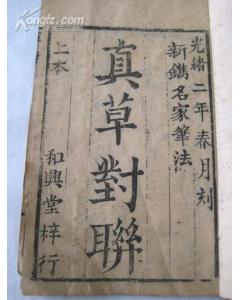 光緒二年春月刻
新鐫名家筆法
真草對聯
上本
和興堂梓行